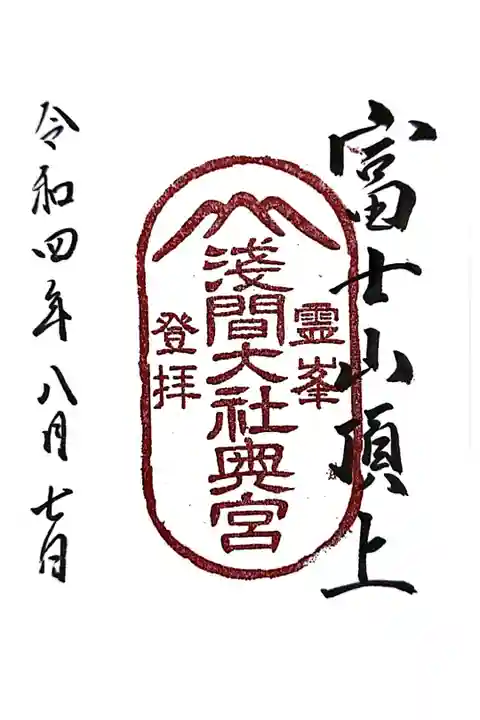 富士山頂上
霊峯
淺間大社奥宮
登拝
令和四年八月七日